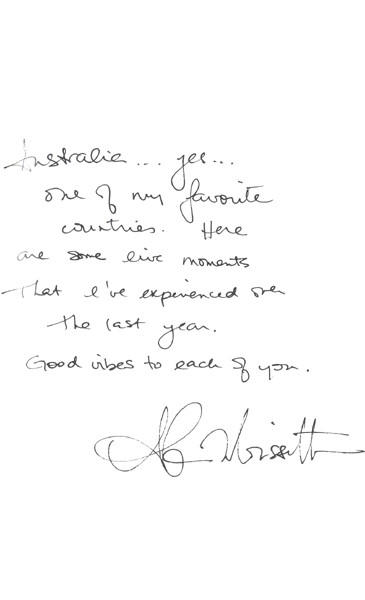 Australia... yes...
one of my favorite
countries. Here
are some live moments
that I've experienced over
the last year.
Good vibes to each of you.
A Morissette